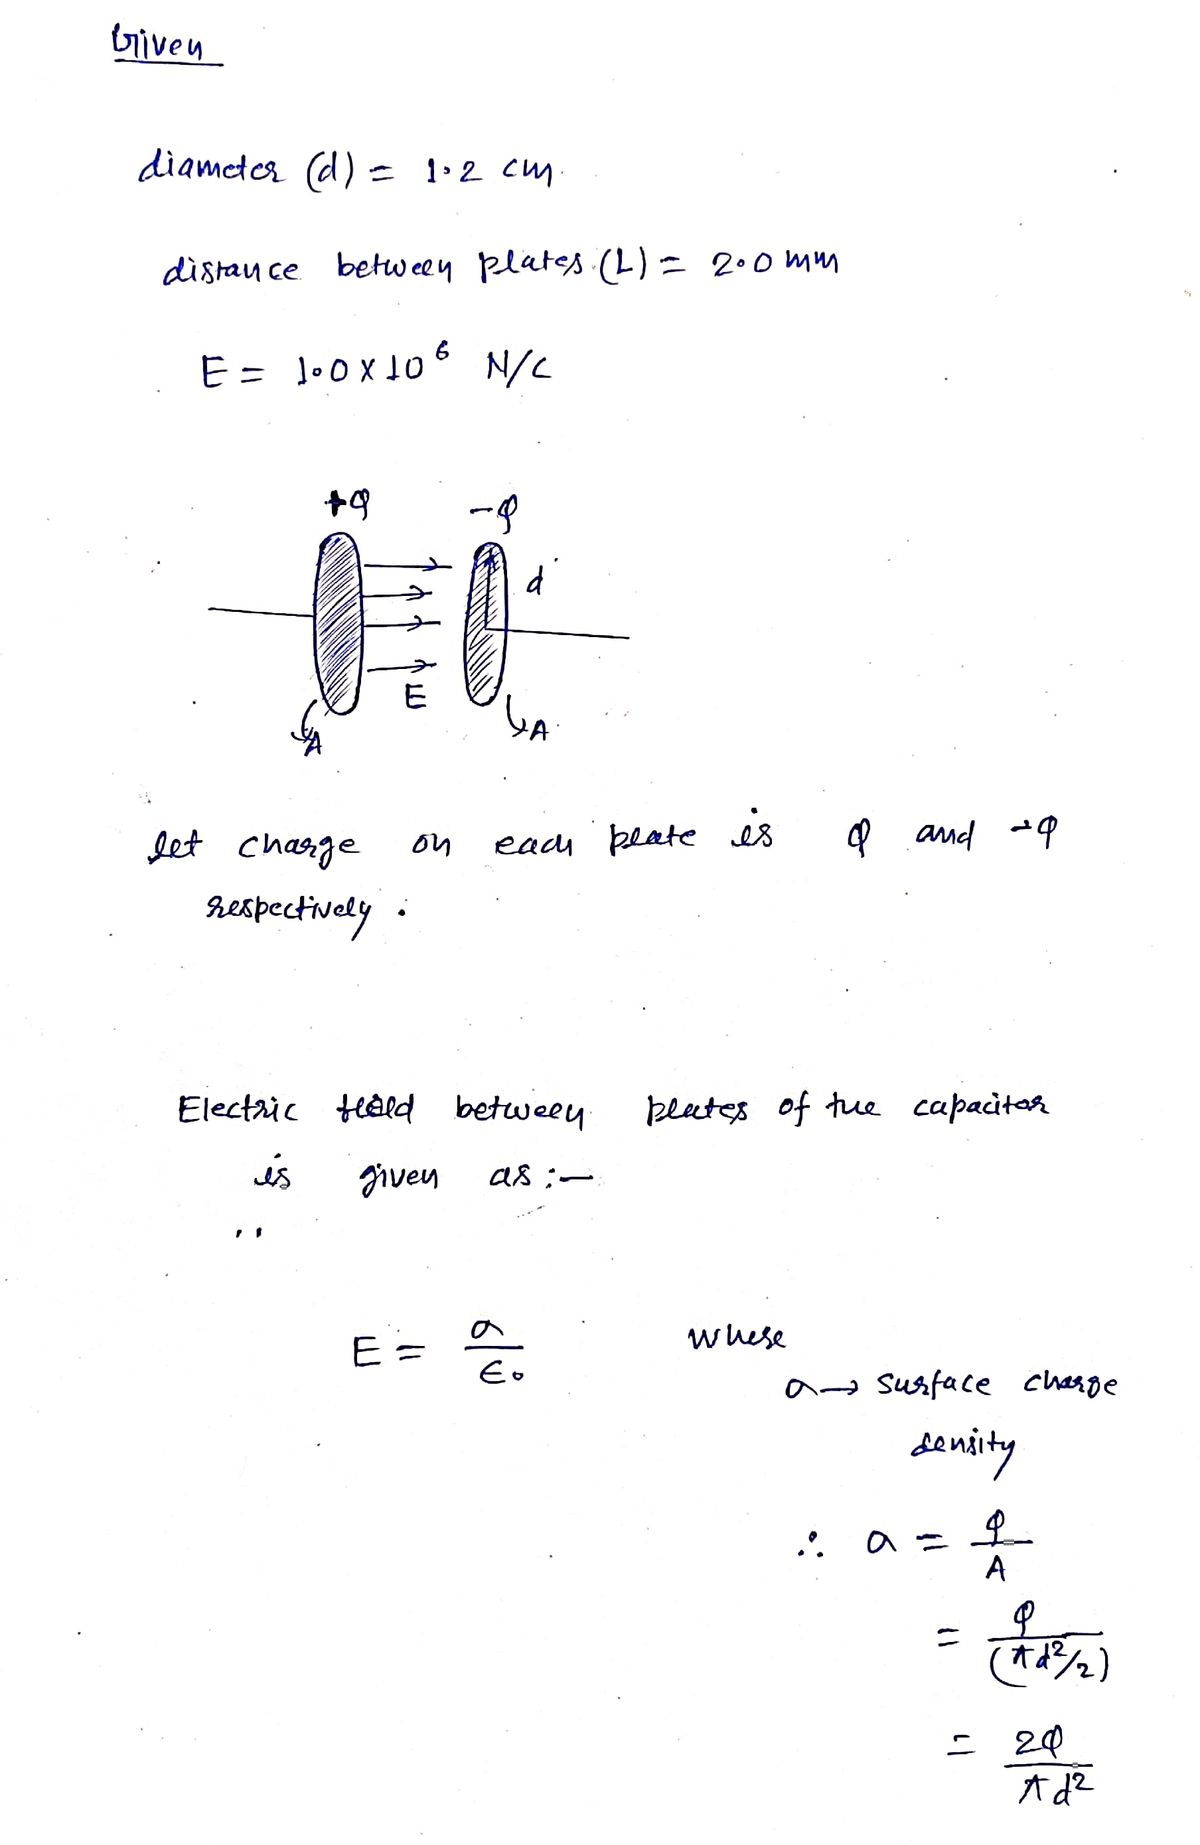 Given
diameter (d) = 1.2 cm
distance between plates (L) = 2.0 mm
E = 1.0 x 10^6 N/C
+Q -Q
d
E
A A
let charge on each plate is Q and -Q
respectively.
Electric field between plates of the capacitor
is given as :-
E = σ/ϵ₀ where
σ → surface charge
density
∴ σ = Q/A
= Q/(πd²/2)
= 2Q/πd²